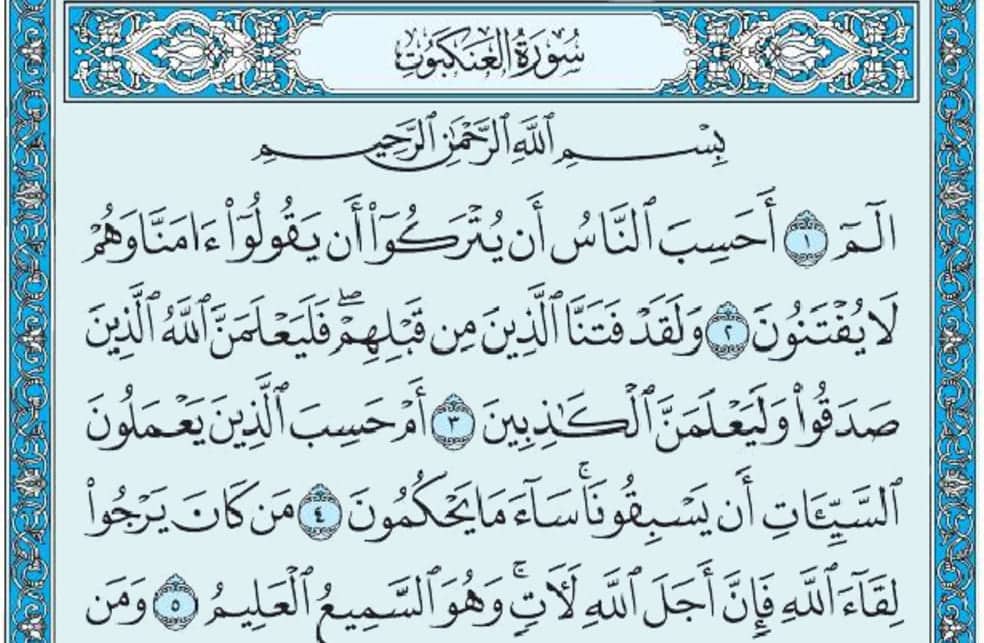 سُورَةُ العَنكَبُوتِ
بِسْمِ ٱللَّهِ ٱلرَّحْمَٰنِ ٱلرَّحِيمِ
الٓمٓ ١ أَحَسِبَ ٱلنَّاسُ أَن يُتْرَكُوٓا۟ أَن يَقُولُوٓا۟ ءَامَنَّا وَهُمْ
لَا يُفْتَنُونَ ٢ وَلَقَدْ فَتَنَّا ٱلَّذِينَ مِن قَبْلِهِمْۖ فَلَيَعْلَمَنَّ ٱللَّهُ ٱلَّذِينَ
صَدَقُوا۟ وَلَيَعْلَمَنَّ ٱلْكَٰذِبِينَ ٣ أَمْ حَسِبَ ٱلَّذِينَ يَعْمَلُونَ
ٱلسَّيِّـَٔاتِ أَن يَسْبِقُونَاۚ سَآءَ مَا يَحْكُمُونَ ٤ مَن كَانَ يَرْجُوا۟
لِقَآءَ ٱللَّهِ فَإِنَّ أَجَلَ ٱللَّهِ لَـَٔاتٍۚ وَهُوَ ٱلسَّمِيعُ ٱلْعَلِيمُ ٥ وَمَن